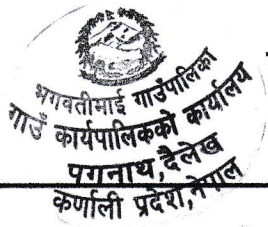 भगवतीमाई गाउँपालिका
गाउँ कार्यपालिकको कार्यालय
पगनाथ, दैलेख
कर्णाली प्रदेश, नेपाल